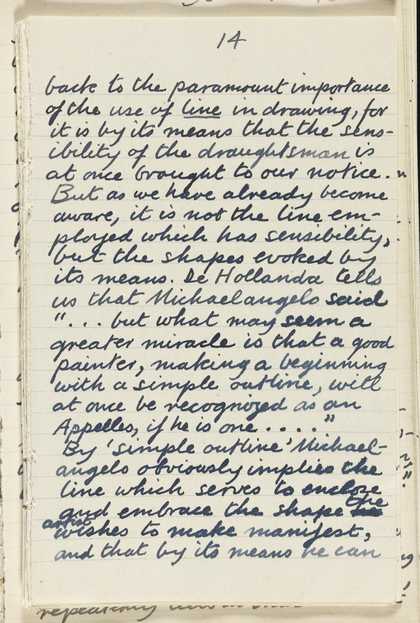 14
back to the paramount importance
of the use of line in drawing, for
it is by its means that the sens-
ibility of the draughtsman is
at once brought to our notice.
But as we have already become
aware, it is not the line em-
ployed which has sensibility,
but the shapes evoked by
its means. De Hollanda tells
us that Michaelangelo said
"... but what may seem a
greater miracle is that a good
painter, making a beginning
with a simple outline, will
at once be recognized as an
Appelles, if he is one . . . ."
By 'simple outline' Michael-
angelo obviously implies the
line which serves to enclose
and embrace the shape the
artist wishes to make manifest,
and that by its means he can
repeatedly